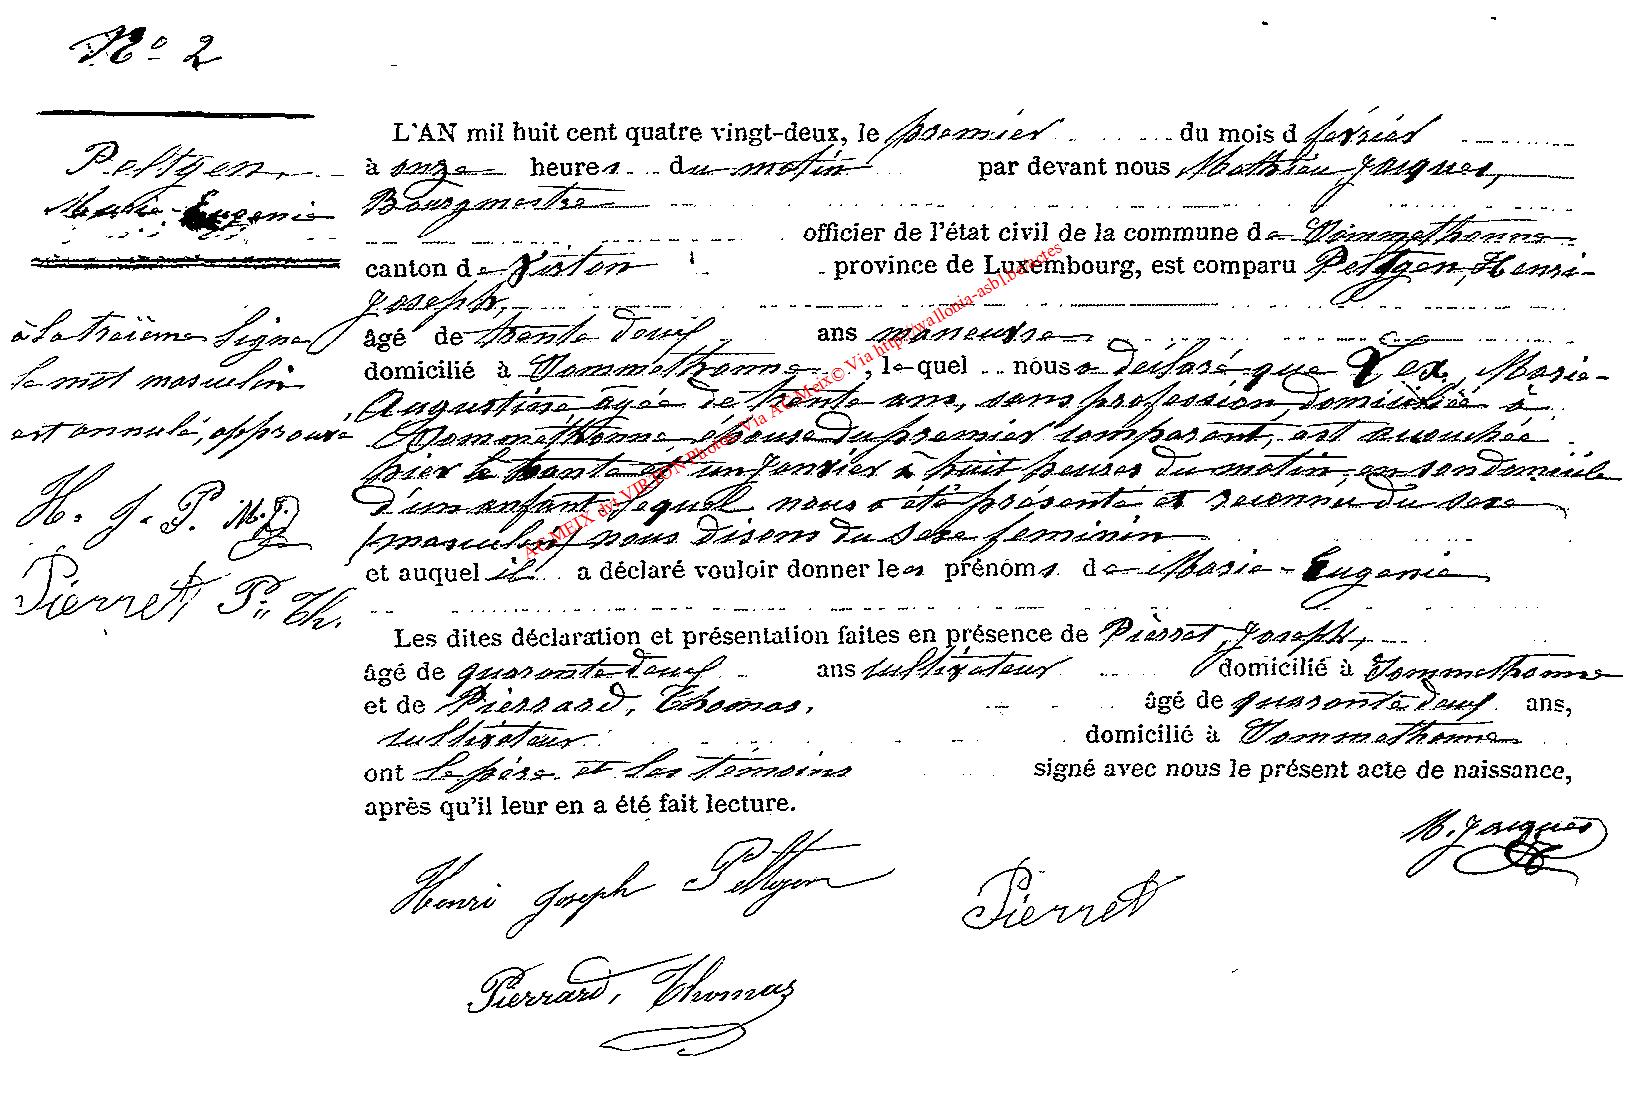 No 2
Peltgen
Marie-Eugenie
à la treïème ligne
le mot masculin
est annulé, approuvé
H. J. P. M. J.
Pierret P. Th.
L'AN mil huit cent quatre vingt-deux, le premier du mois d fevrier
à onze heures du matin par devant nous Mathieu Jacques,
Bourgmestre
officier de l'état civil de la commune de Sommethonne
canton de Virton province de Luxembourg, est comparu Peltgen, Henri-
Joseph,
âgé de trente deux ans maneuvre
domicilié à Sommethonne, lequel nous a déclaré que Lex, Marie-
Augustine, agée de trente ans, sans profession, domiciliée à
Sommethonne épouse du premier comparant, est accouchée
hier le trente et un Janvier à huit heures du matin, en son domicile
d'un enfant lequel nous a été présenté et reconnu du sexe
(masculin) nous disons du sexe feminin
et auquel il a déclaré vouloir donner les prénoms de Marie-Eugenie
Les dites déclaration et présentation faites en présence de Pierret, Joseph,
âgé de quarante deux ans cultivateur domicilié à Sommethonne
et de Pierrard, Thomas, âgé de quarante deux ans,
cultivateur domicilié à Sommethonne
ont le père et les témoins signé avec nous le présent acte de naissance,
après qu'il leur en a été fait lecture.
M. Jacques
Henri Joseph Peltgen
Pierret
Pierrard, Thomas
AC MEIX dvt VIRTON Photos Via AC Meix© Via http://wallonia-asbl.be/actes